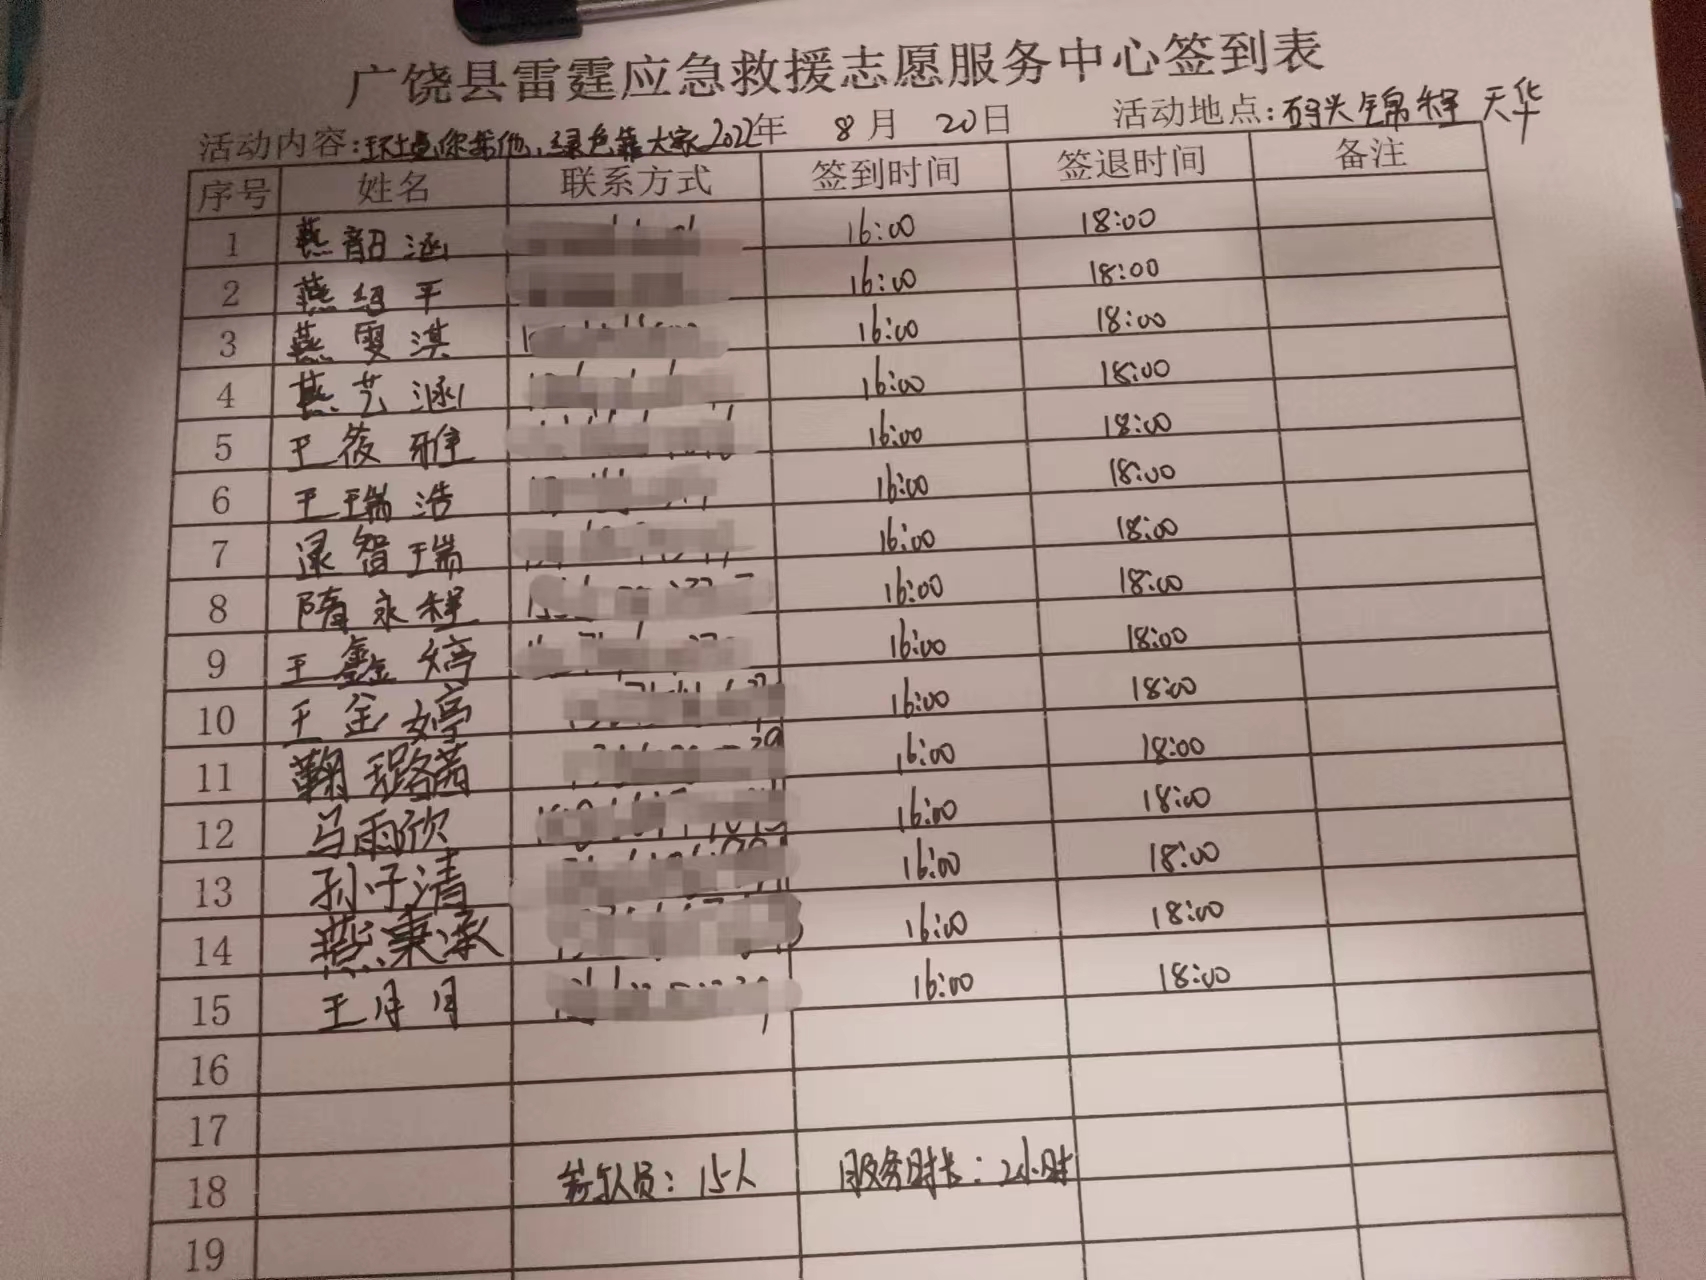 广饶县雷霆应急救援志愿服务中心签到表
活动内容:环境你我他,绿色靠大家 2022年 8月 20日 活动地点:码头锦程天华
序号 姓名 联系方式 签到时间 签退时间 备注
1 燕韶涵 16:00 18:00
2 燕绍平 16:00 18:00
3 燕雯淇 16:00 18:00
4 燕艺涵 16:00 18:00
5 王筱雅 16:00 18:00
6 王瑞浩 16:00 18:00
7 逯智瑞 16:00 18:00
8 隋永程 16:00 18:00
9 王鑫婷 16:00 18:00
10 王金婷 16:00 18:00
11 鞠璐茜 16:00 18:00
12 马雨欣 16:00 18:00
13 孙子清 16:00 18:00
14 燕秉承 16:00 18:00
15 王月月 16:00 18:00
16
17
18 参与人员:15人 服务时长:2小时
19